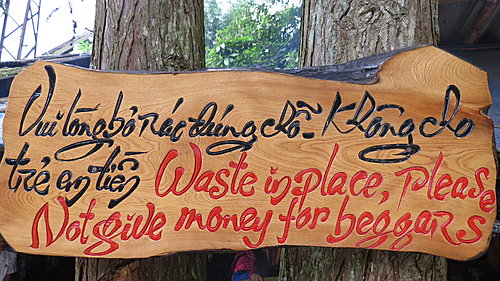 Vui lòng bỏ rác đúng chỗ - Không cho
trẻ em tiền Waste in place, please
Not give money for beggars